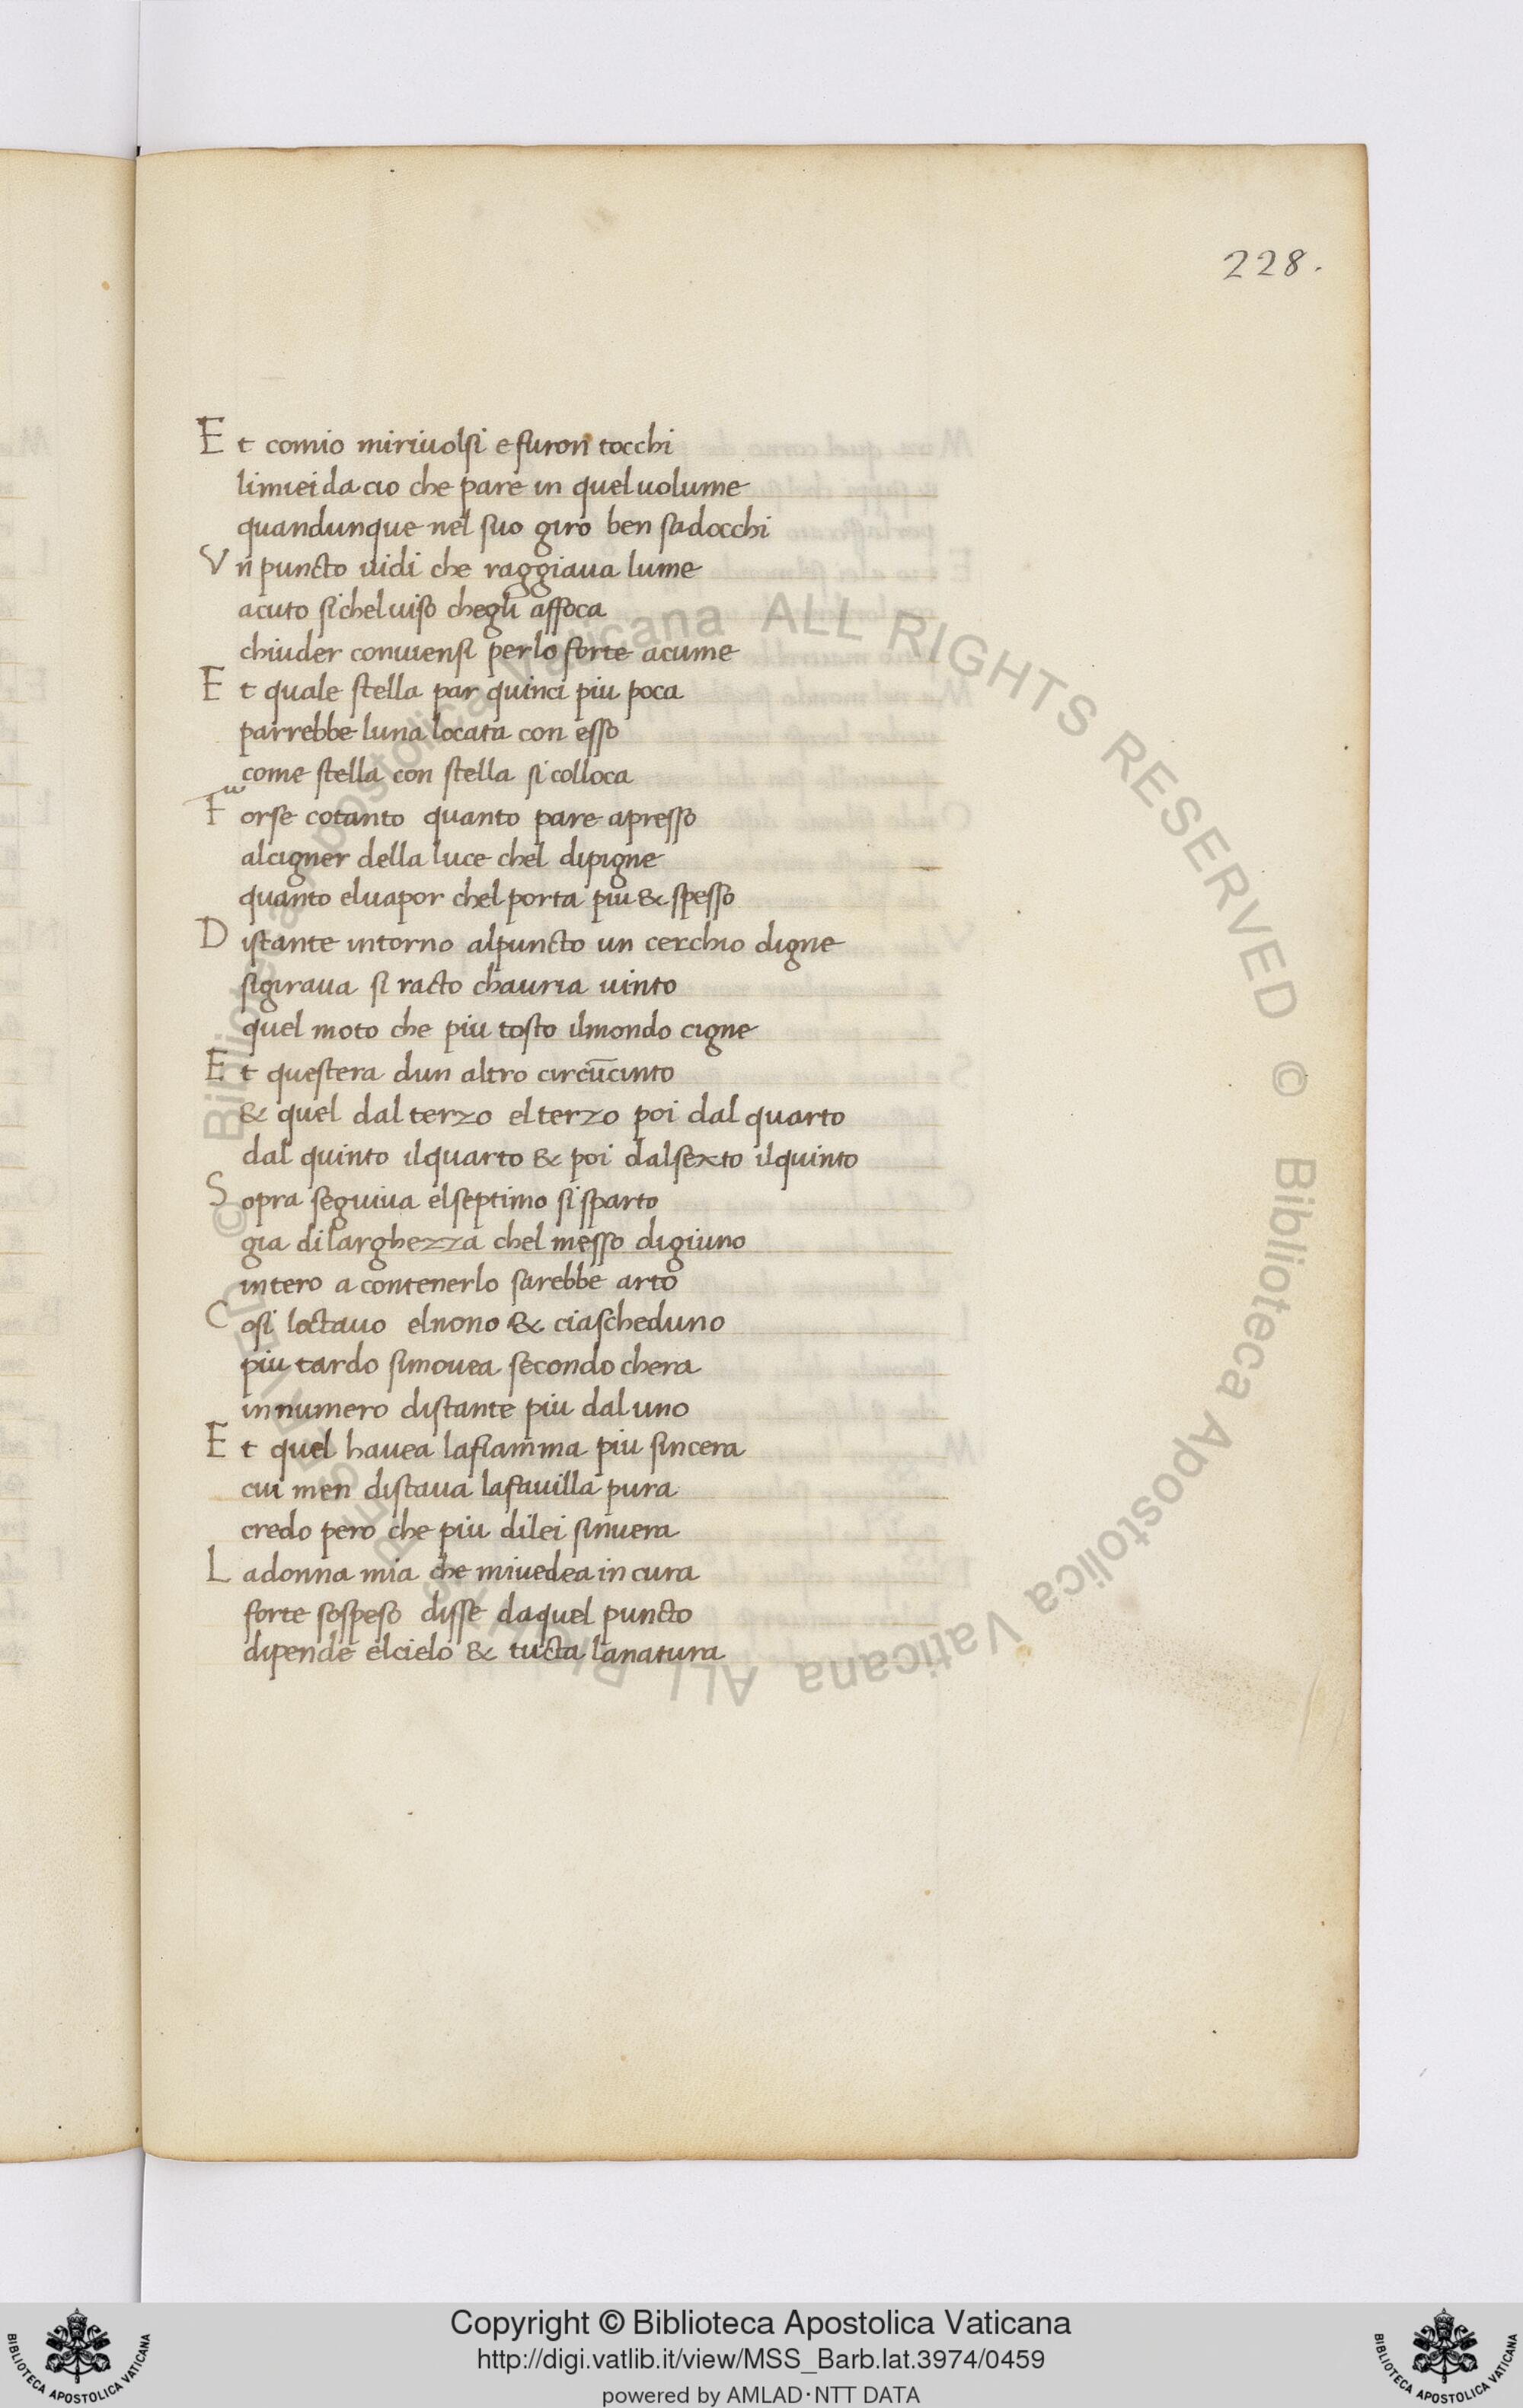 228.
Et comio miriuolsi e furon tocchi
limiei da cio che pare in quel uolume
quandunque nel suo giro ben sadocchi
Vn puncto uidi che raggiaua lume
acuto si chel uiso chegli affoca
chiuder conuiensi per lo forte acume
Et quale stella par quinci piu poca
parrebbe luna locata con esso
come stella con stella si colloca
Forse cotanto quanto pare apresso
alcigner della luce chel dipigne
quanto eluapor chel porta piu & spesso
Distante intorno alpuncto un cerchio digne
sigiraua si racto chauria uinto
quel moto che piu tosto ilmondo cigne
Et questera dun altro circūcinto
& quel dal terzo el terzo poi dal quarto
dal quinto ilquarto & poi dalsexto ilquinto
Sopra seguiua elseptimo si sparto
gia di larghezza chel messo digiuno
intero a contenerlo sarebbe arto
Cosi loctauo elnono & ciascheduno
piu tardo simouea secondo chera
innumero distante piu dal uno
Et quel hauea lafiamma piu sincera
cui men distaua lafauilla pura
credo pero che piu dilei sinuera
Ladonna mia che miuedea in cura
forte sospeso disse daquel puncto
dipende elcielo & tucta lanatura
© Biblioteca Apostolica Vaticana ALL RIGHTS RESERVED © Biblioteca Apostolica Vaticana ALL RIGHTS RESERVED
Copyright © Biblioteca Apostolica Vaticana
http://digi.vatlib.it/view/MSS_Barb.lat.3974/0459
powered by AMLAD·NTT DATA
BIBLIOTECA APOSTOLICA VATICANA
BIBLIOTECA APOSTOLICA VATICANA